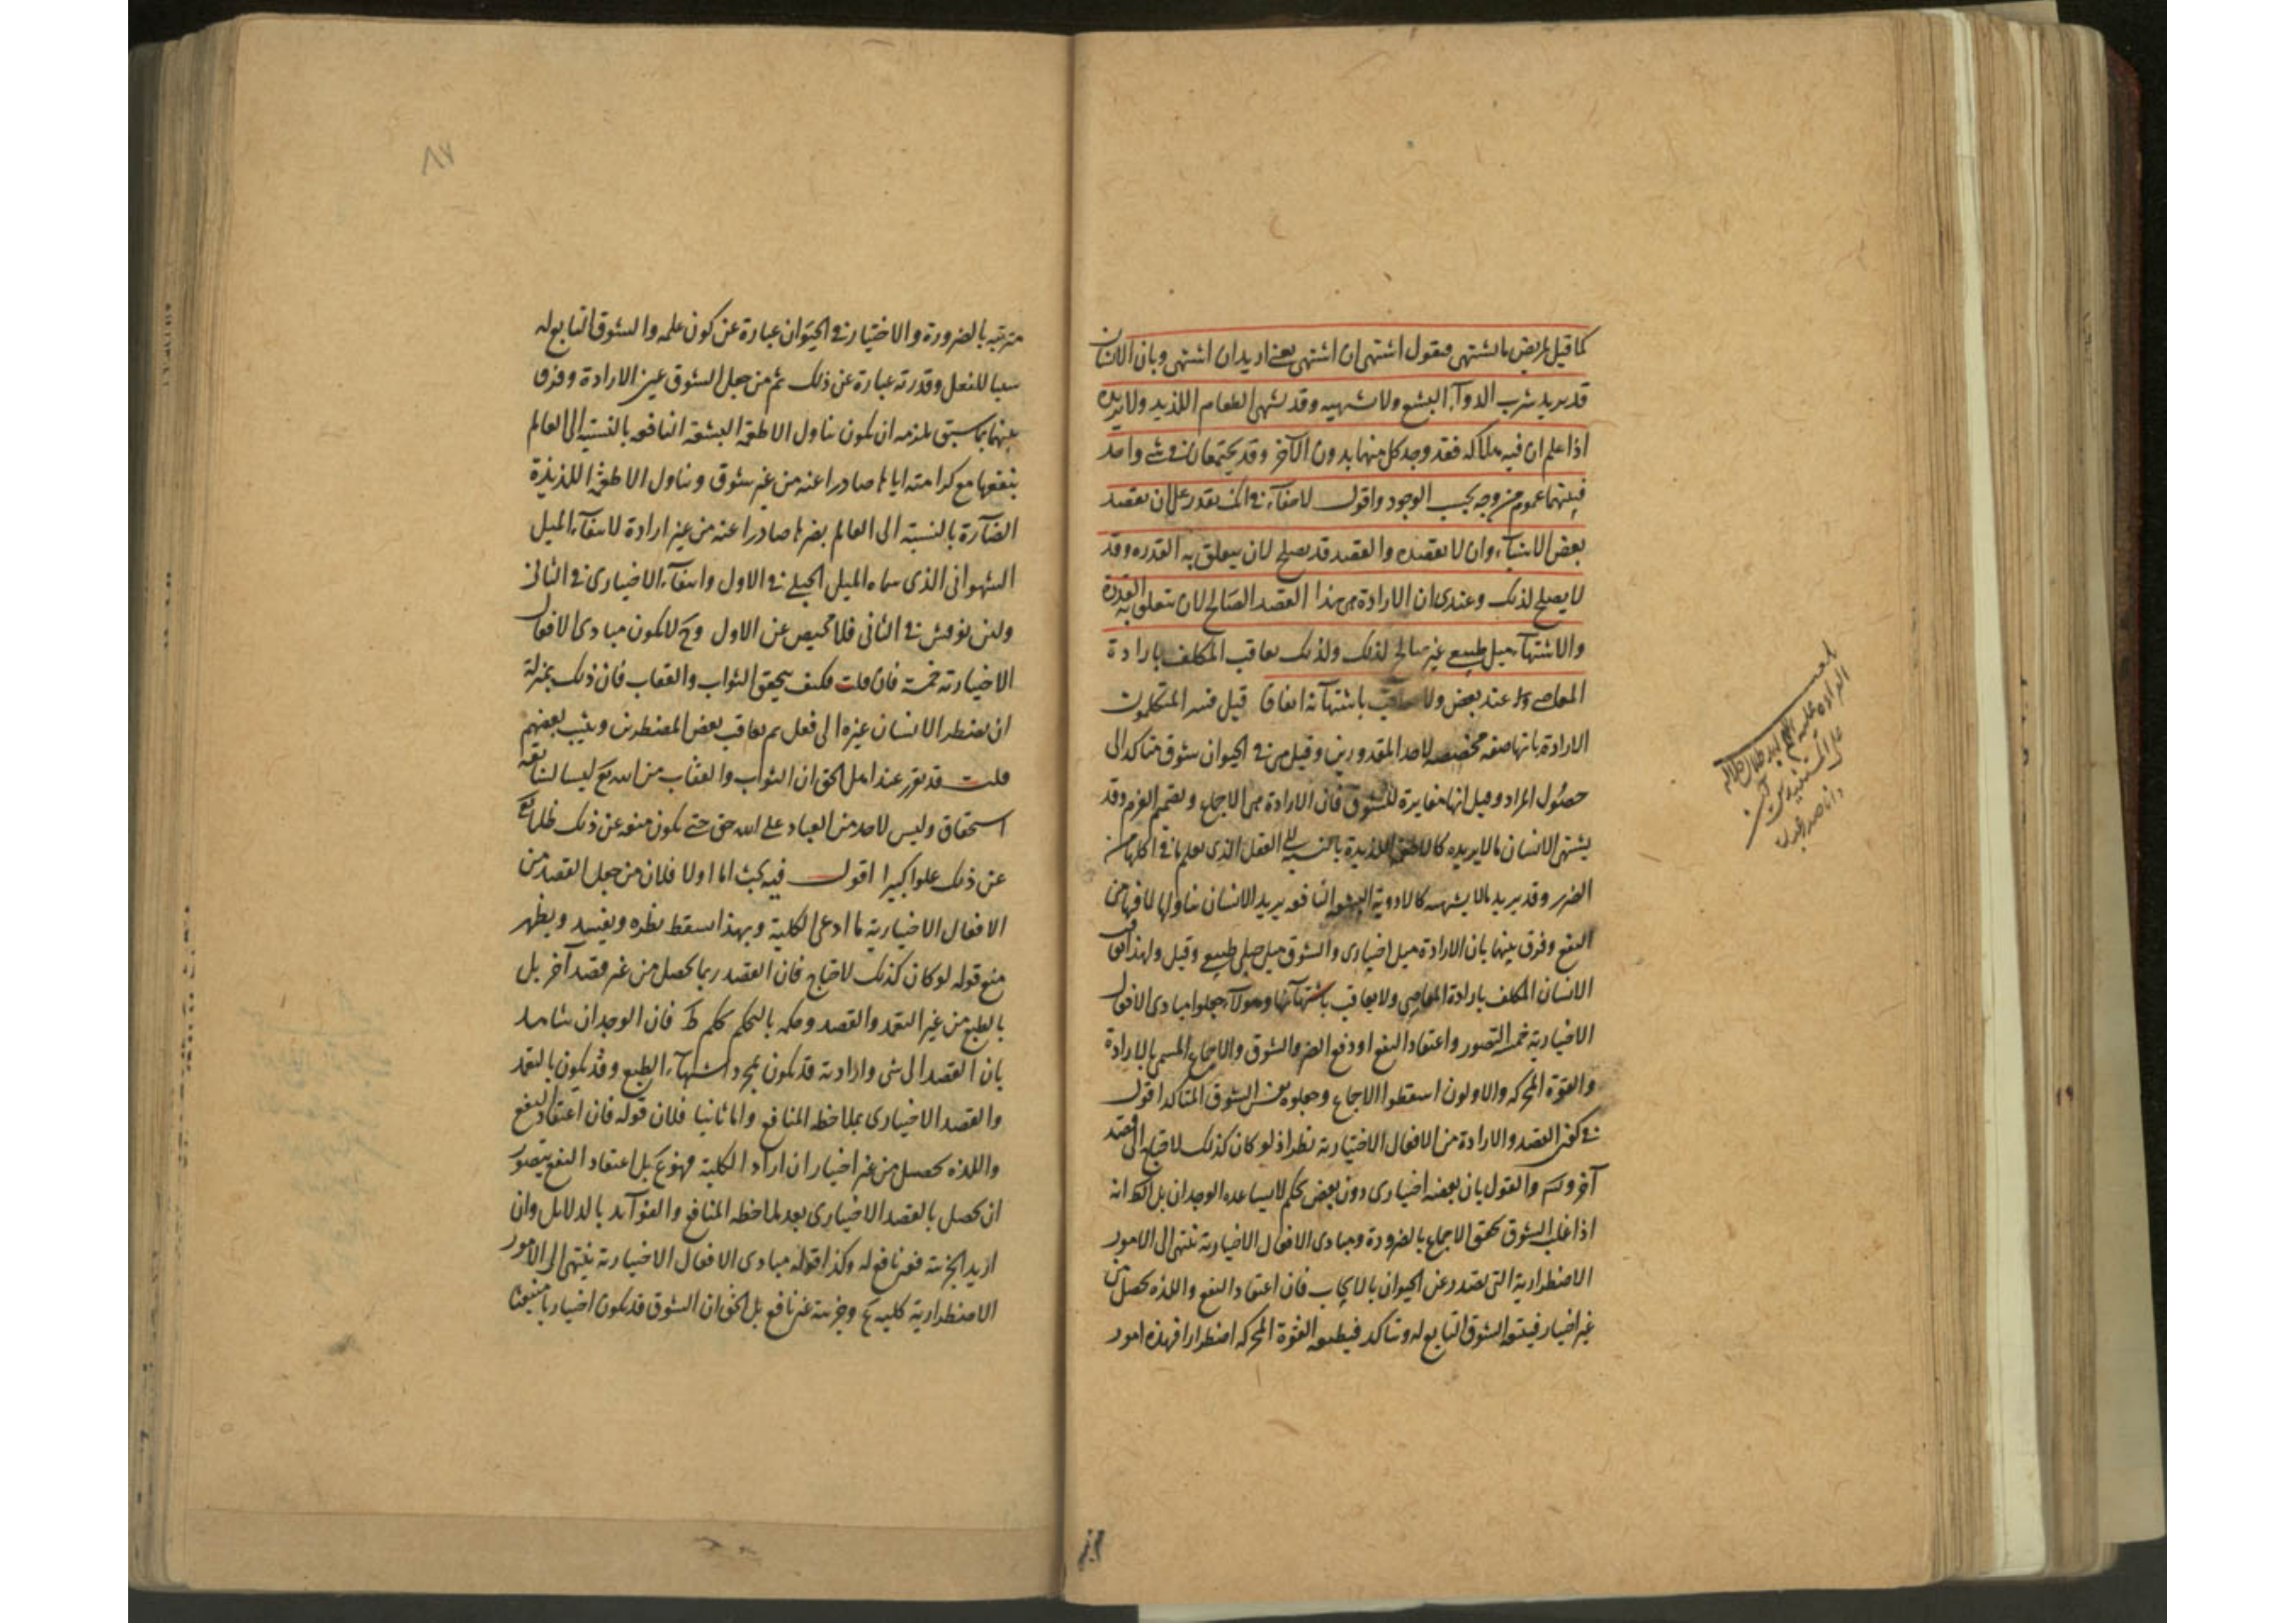 كما قيل لمريض ما تشتهى فيقول اشتهى ان اشتهى يعنى اريد ان اشتهى وبان الانسان
قد يريد شرب الدوآء البشع ولا يشتهيه وقد يشتهى الطعام اللذيذ ولا يريده
اذا علم ان فيه هلاكه فقد وجد كل منهما بدون الآخر وقد يجتمعان فى شئ واحد
فبينهما عموم من وجه بحسب الوجود واقول لا خفآء فى انك تقدر على ان تقصد
بعض الاشيآء وان لا تقصده والقصد قد يصلح لان يتعلق به القدره وقد
لا يصلح لذلك وعندى ان الارادة هى هذا القصد الصالح لان يتعلق به القدرة
والاشتهآء ميل طبيعى غير صالح لذلك ولذلك يعاقب المكلف بارادة
المعاصى عند بعض ولا يعاقب باشتهآئه اتفاقا قيل فسر المتكلمون
الارادة بانها صفة مخصصه لاحد المقدورين وقيل هى فى الحيوان شوق متاكد الى
حصول المراد وقيل انها مغايرة للشوق فان الارادة هى الاجماع وتصميم العزم وقد
يشتهى الانسان ما لا يريده كالاطعمة اللذيذة بالنسبة الى العقل الذى يعلم ما فى اكلها من
الضرر وقد يريد ما لا يشتهيه كالادوية البشعه النافعه يريد الانسان تناولها لما فيها من
النفع وفرق بينهما بان الارادة ميل اختيارى والشوق ميل جبلى طبيعى وقيل ولهذا يعاقب
الانسان المكلف بارادة المعاصى ولا يعاقب باشتهآئها وهولآء جعلوا مبادى الافعال
الاختيارية خمسة التصور واعتقاد النفع او دفع الضر والشوق والاجماع المسمى بالارادة
والقوة المحركه والاولون اسقطوا الاجماع وجعلوه نفس الشوق المتاكد اقول
فى كون القصد والارادة من الافعال الاختيارية نظر اذ لو كان كذلك لاحتاج الى قصد
آخر وتس والقول بان بعضه اختيارى دون بعض تحكم لا يساعده الوجدان بل الظ انه
اذا غلب الشوق تحقق الاجماع بالضرورة ومبادى الافعال الاختيارية تنتهى الى الامور
الاضطرارية التى تصدر عن الحيوان بالايجاب فان اعتقاد النفع واللذه تحصل من
غير اختيار فيتبعه الشوق التابع له وتتاكد فيطيعه القوة المحركه اضطرارا فهذه امور
مترتبه بالضرورة والاختيار فى الحيوان عبارة عن كون علمه والشوق التابع له
سببا للفعل وقدرته عبارة عن ذلك ثم من جعل الشوق غير الارادة وفرق
بينهما بما سبق يلزمه ان يكون تناول الاطعمة البشعة النافعه بالنسبة الى العالم
بنفعها مع كرامته اياها صادرا عنه من غير شوق وتناول الاطعمة اللذيذة
الضآرة بالنسبة الى العالم بضرها صادرا عنه من غير ارادة لانتفآء الميل
الشهوانى الذى سماه الميل الجبلى فى الاول وانتفآء الاختيارى فى الثانى
ولئن نوقش فى الثانى فلا محيص عن الاول وح لا يكون مبادى الافعال
الاختيارية خمسة فان قلت فكيف يتحقق الثواب والعقاب فان ذلك بمنزلة
ان يضطر الانسان غيره الى فعل ثم يعاقب بعض المضطرين ويثيب بعضهم
قلت قد تقرر عند اهل الحق ان الثواب والعقاب من الله تع ليسا لسابقة
استحقاق وليس لاحد من العباد على الله حق حتى يكون منعه عن ذلك ظلما تع
عن ذلك علوا كبيرا اقول فيه بحث اما اولا فلان من جعل القصد من
الافعال الاختيارية ما ادعى الكلية وبهذا يسقط نظره ويفيد ويظهر
منع قوله لو كان كذلك لاحتاج فان القصد ربما يحصل من غير قصد آخر بل
بالطبع من غير التعمد والقصد وحكمه بالتحكم تحكم ظ فان الوجدان شاهد
بان القصد الى شى وارادته قد يكون بمجرد اشتهآء الطبع وقد يكون بالتعمد
والقصد الاختيارى بملاحظه المنافع واما ثانيا فلان قوله فان اعتقاد النفع
واللذه يحصل من غير اختيار ان اراد الكلية فهو ع بل اعتقاد النفع يتصور
ان يحصل بالقصد الاختيارى بعد ملاحظه المنافع والفوآئد بالدلائل وان
اريد الجزئية فغير نافع له وكذا قوله مبادى الافعال الاختيارية ينتهى الى الامور
الاضطرارية كليه ع وجزئية غير نافع بل الحق ان الشوق قد يكون اختياريا منبعثا
٨٧